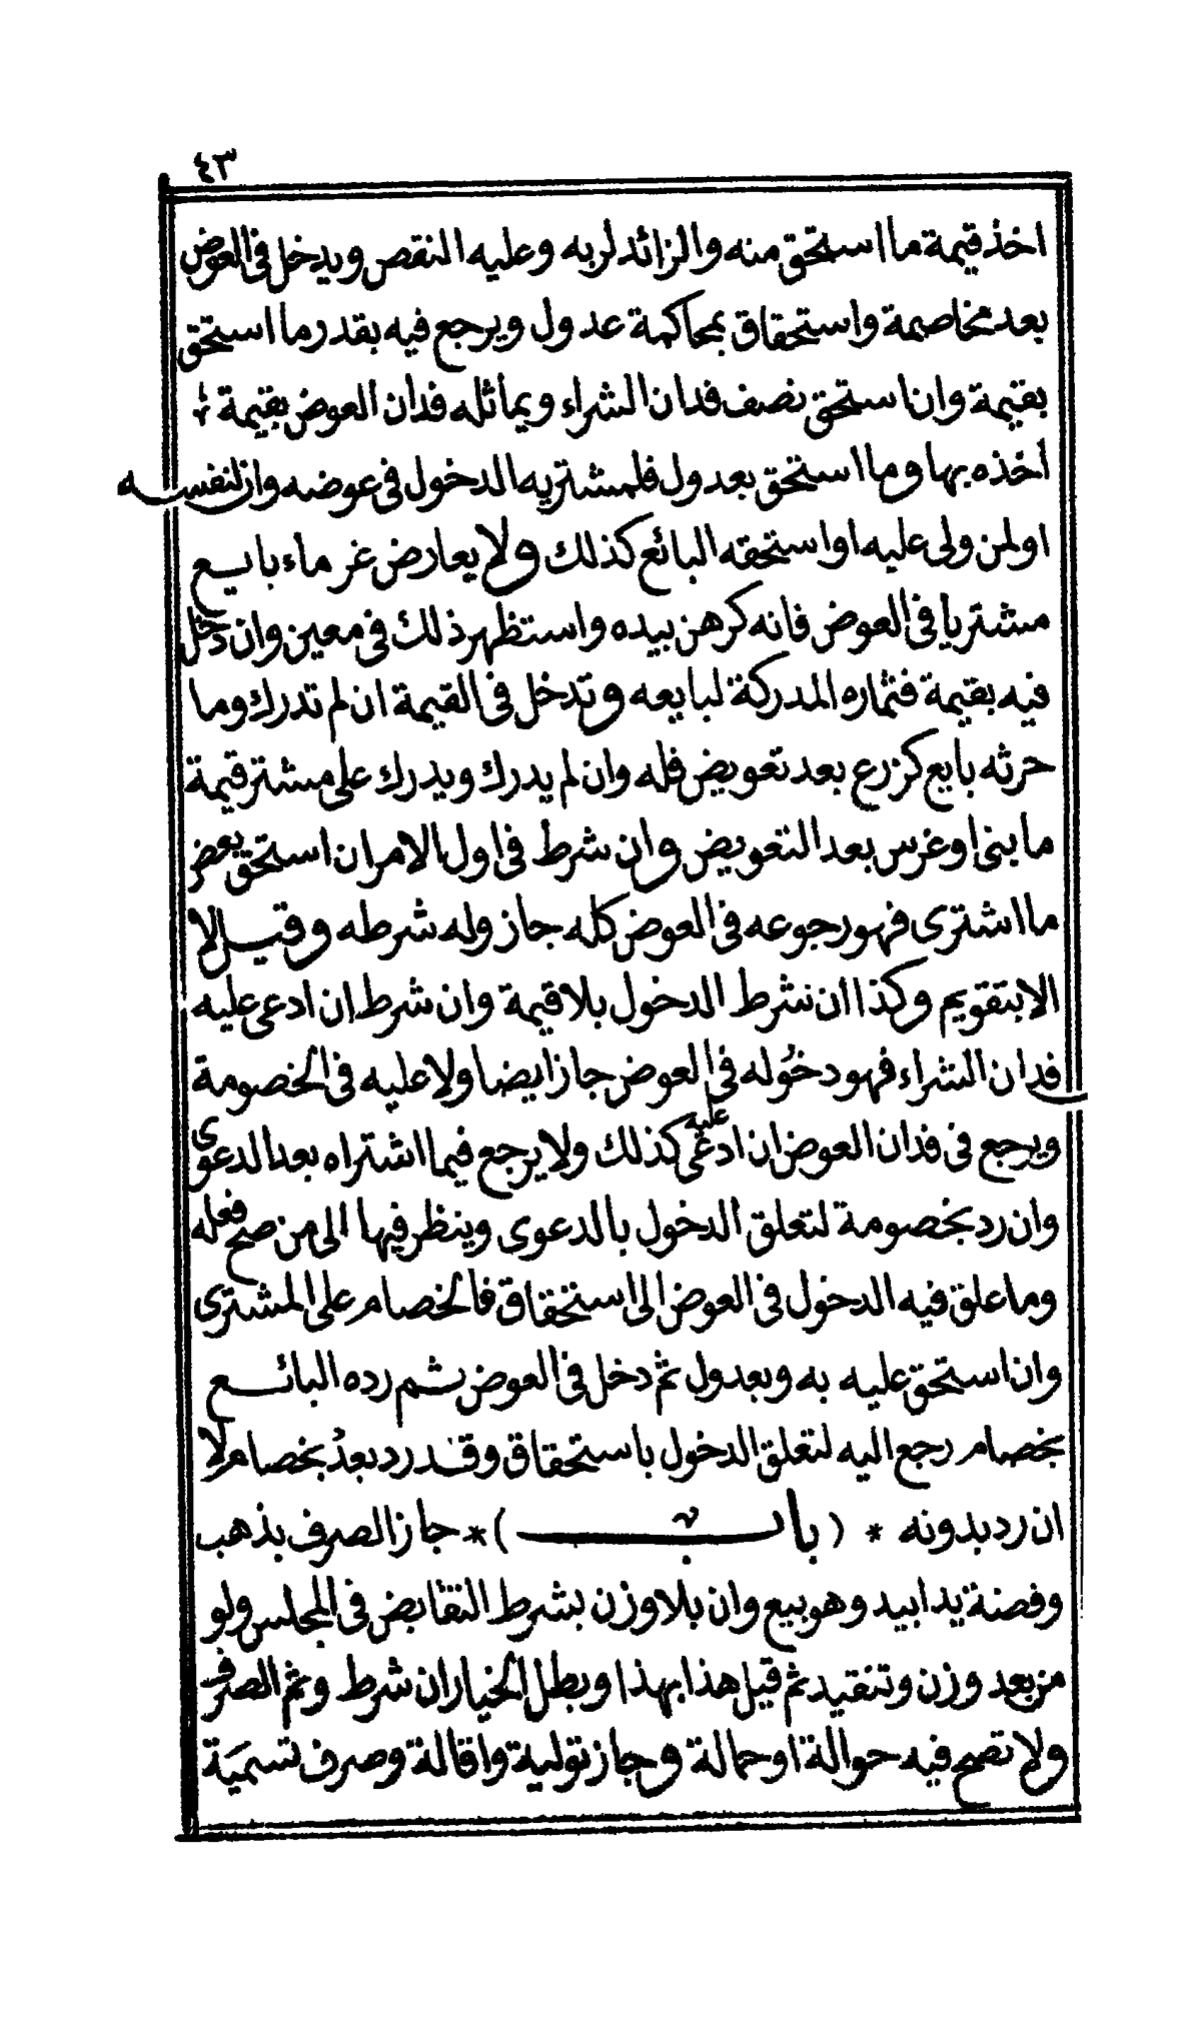 ٤٣
اخذ قيمة ما استحق منه والزائد لربه وعليه النقص ويدخل فى العوض
بعد مخاصمة واستحقاق بمحاكمة عدول ويرجع فيه بقدر ما استحق
بقيمة وان استحق نصف فدان الشراء ويماثله فدان العوض بقيمة
أخذه بها وما استحق بعدول فلمشتريه الدخول فى عوضه وان لنفسه
او لمن ولى عليه او استحقه البائع كذلك ولا يعارض غرماء بايع
مشتريا فى العوض فانه كرهن بيده واستظهر ذلك فى معين وان دخل
فيه بقيمة فثماره المدركة لبايعه وتدخل فى القيمة ان لم تدرك وما
حرثه بايع كزرع بعد تعويض فله وان لم يدرك ويدرك على مشتر قيمة
ما بنى او غرس بعد التعويض وان شرط فى اول الامر ان استحق بعض
ما اشترى فهو رجوعه فى العوض كله جاز وله شرطه وقيل لا
الا بتقويم وكذا ان شرط الدخول بلا قيمة وان شرط ان ادعى عليه
فدان الشراء فهو دخوله فى العوض جاز ايضا ولا عليه فى الخصومة
ويرجع فى فدان العوض ان ادعى عليه كذلك ولا يرجع فيما اشتراه بعد الدعوى
وان رد بخصومة لتعلق الدخول بالدعوى وينظر فيها الى من صح فعله
وما علق فيه الدخول فى العوض الى استحقاق فالخصام على المشترى
وان استحق عليه به وبعدول ثم دخل فى العوض ثم رده البائع
بخصام رجع اليه لتعلق الدخول باستحقاق وقد رد بعد بخصام لا
ان رد بدونه * ( باب ) * جاز الصرف بذهب
وفضة يدا بيد وهو بيع وان بلا وزن بشرط التقابض فى المجلس ولو
من بعد وزن وتنقيد ثم قيل هذا بهذا وبطل الخيار ان شرط وتم الصرف
ولا تصح فيه حوالة او حمالة وجاز تولية واقالة وصرف تسمية